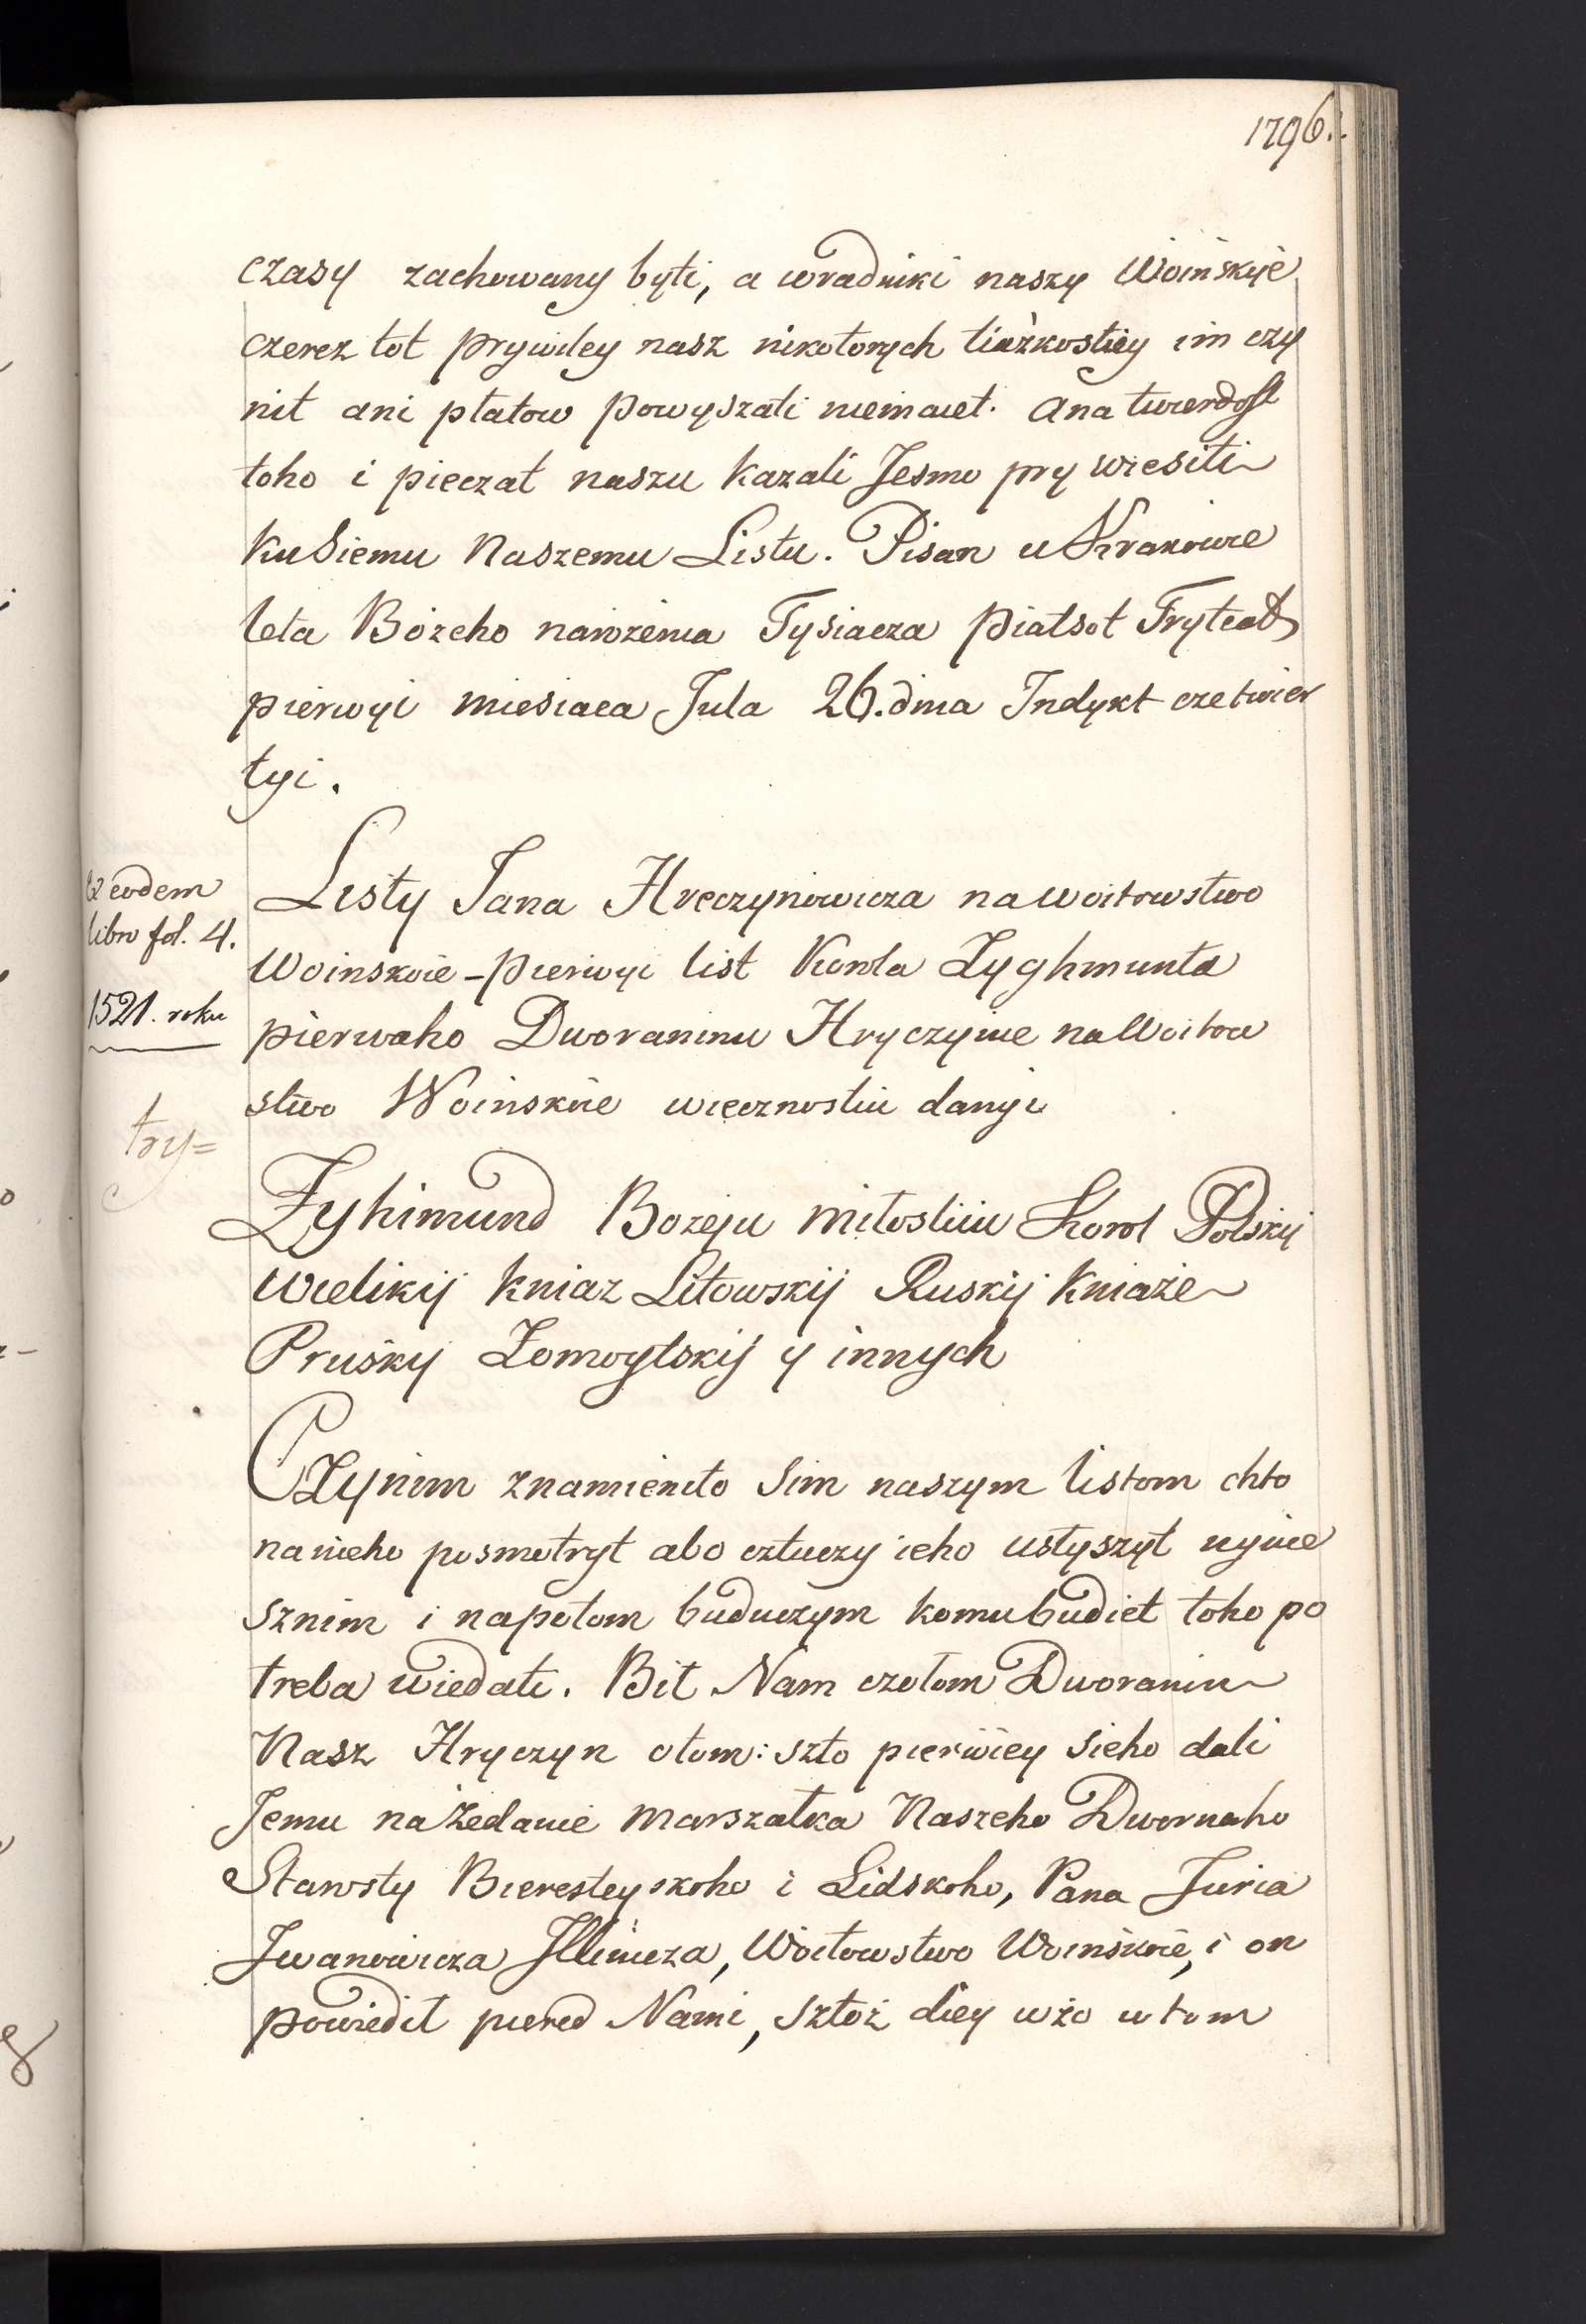 1796.
czasy zachowany byti, a wradniki naszy Woinskye
czerez tot prywiley nasz nikotorych tiażkostiey im czy
nit ani płatow powyszati nieimaiet. Ana twerdost
toho i pieczat naszu kazali Jesmo pry wiesiti
kuSiemu Naszemu Listu. Pisan u Krakowie
leta Bożeho narożenia Tysiacza Piatsot Trytcat
pierwyi miesiaca Jula 26. dnia Indykt czetwier
tyi.
Ex eodem
libro fol. 4.
1521. roku
try=
Listy Jana Hreczynowicza na woitowstwo
Woinskoie - pierwyi list Korola Zyghmunta
pierwaho Dworaninu Hryczynie na Woitow
stwo Woinskoie wiecznostiu danyi
Zyhimund Bożeju miłostiiu Korol Polskij
Wielikij kniaz Litowskij Ruskij kniaże
Prusky Żomoytskij y innych
CZynim znamienito Sim naszym listom chto
na nieho posmotryt abo cztuczy ieho usłyszyt nynie
sznim i napotom buduczym komu budiet toho po
treba wiedati. Bił Nam czołom Dworanin
Nasz Hryczyn otom: szto pierwiey sieho dali
Jemu na Żedanie Marszałka Naszeho Dwornaho
Starosty Bieresteyskoho i Lidskoho, Pana Juria
Jwanowicza Jllinicza, Woitowstwo Woinskoie, i on
powiedił pered Nami, sztoż diey użo u tom